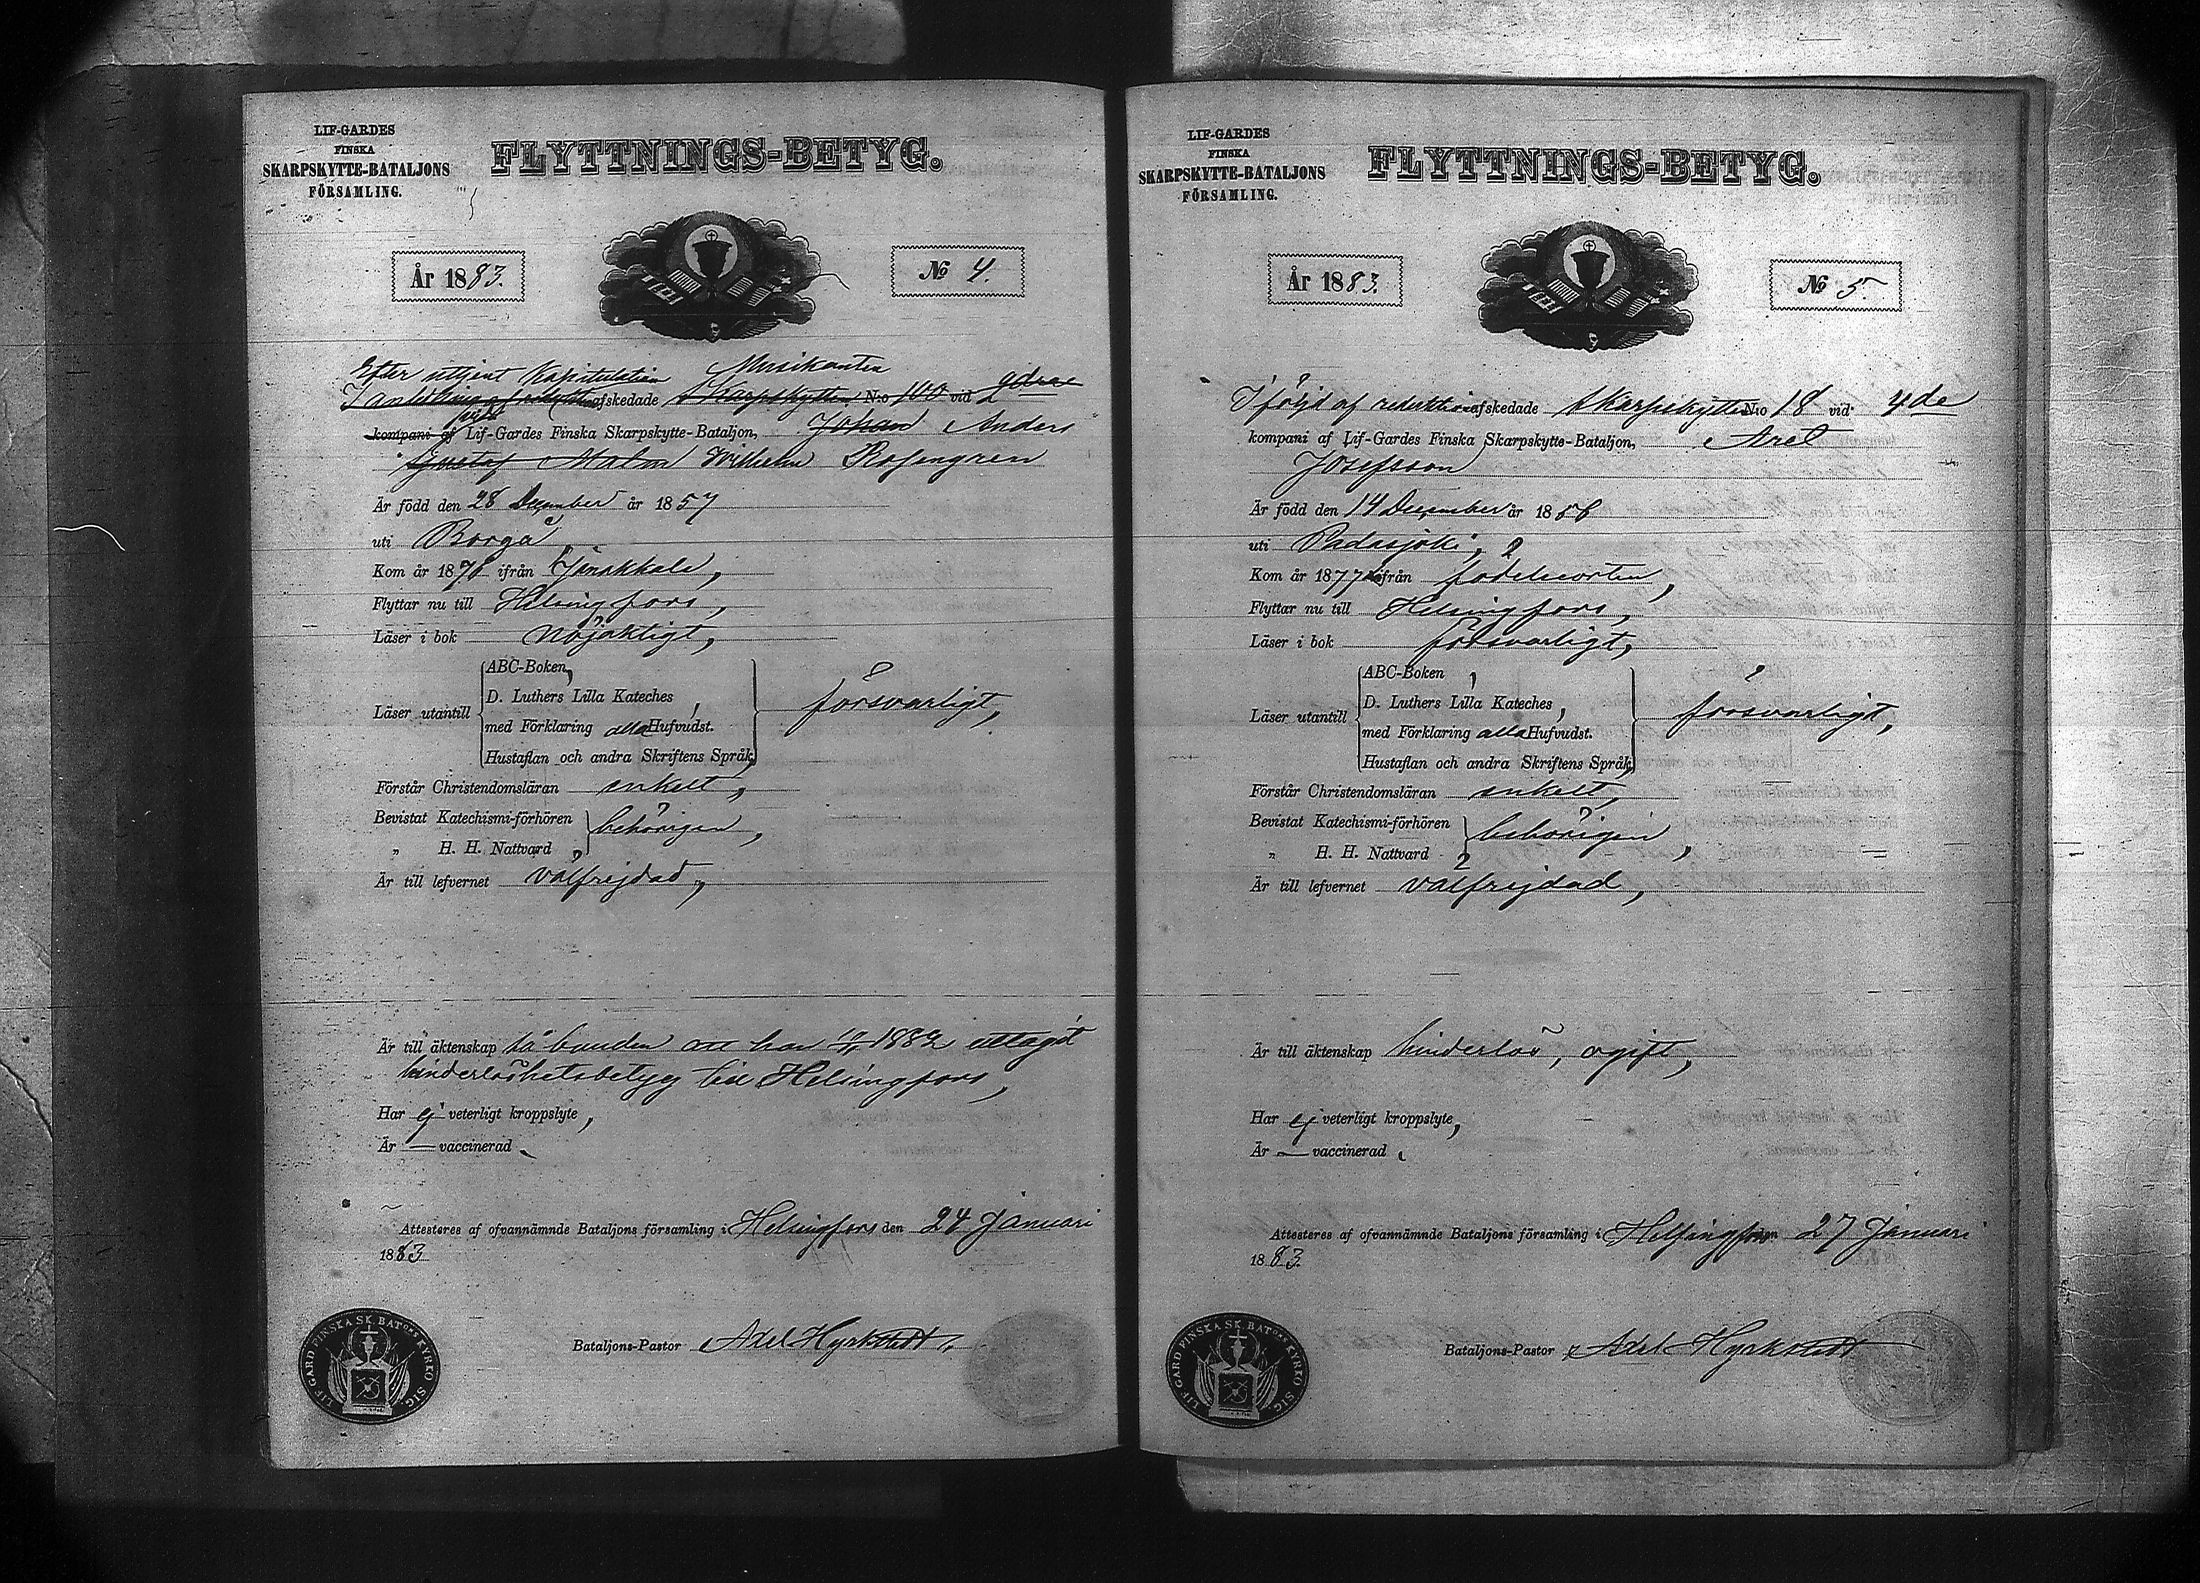 LIF-GARDES
FINSKA
SKARPSKYTTE-BATALJONS
FÖRSAMLING.
FLYTTNINGS-BETYG.
År 1883.
No 4.
Efter uttjent Kapitulation Musikanten
afskedade Skarpskytten N:o 100 vid 2dra
kompani af Lif-Gardes Finska Skarpskytte-Bataljon, Johan Anders
Gustaf Malm Wilhelm Rosengren
Är född den 28 December år 1857
uti Borgå
Kom år 1876 ifrån Janakkala,
Flyttar nu till Helsingfors,
Läser i bok nöjaktigt,
Läser utantill
ABC-Boken,
D. Luthers Lilla Kateches,
med Förklaring alla Hufvudst.
Hustaflan och andra Skriftens Språk,
försvarligt,
Förstår Christendomsläran enkelt,
Bevistat Katechismi-förhören
„ H. H. Nattvard
behörigen,
Är till lefvernet välfrejdad,
Är till äktenskap så bunden att han 1882 uttagit
hinderlöshetsbetyg till Helsingfors,
Har ej veterligt kroppslyte,
Är — vaccinerad.
Attesteres af ofvannämnde Bataljons församling i Helsingfors den 24 Januari
1883
Bataljons-Pastor Axel Hyrkstedt.
LIF GARD FINSKA SK. BATONS KYRKO SIG.
LIF-GARDES
FINSKA
SKARPSKYTTE-BATALJONS
FÖRSAMLING.
FLYTTNINGS-BETYG.
År 1883.
No 5.
I följd af reduktion afskedade Skarpskytten N:o 18 vid 4de
kompani af Lif-Gardes Finska Skarpskytte-Bataljon, Axel
Josefsson
Är född den 14 December år 1856
uti Padasjoki,
Kom år 1877 ifrån födelseorten,
Flyttar nu till Helsingfors,
Läser i bok försvarligt,
Läser utantill
ABC-Boken,
D. Luthers Lilla Kateches,
med Förklaring alla Hufvudst.
Hustaflan och andra Skriftens Språk,
försvarligt,
Förstår Christendomsläran enkelt,
Bevistat Katechismi-förhören
„ H. H. Nattvard
behörigen,
Är till lefvernet välfrejdad,
Är till äktenskap hinderlös, ogift,
Har ej veterligt kroppslyte,
Är — vaccinerad.
Attesteres af ofvannämnde Bataljons församling i Helsingfors den 27 Januari
1883.
Bataljons-Pastor Axel Hyrkstedt
LIF GARD FINSKA SK. BATONS KYRKO SIG.